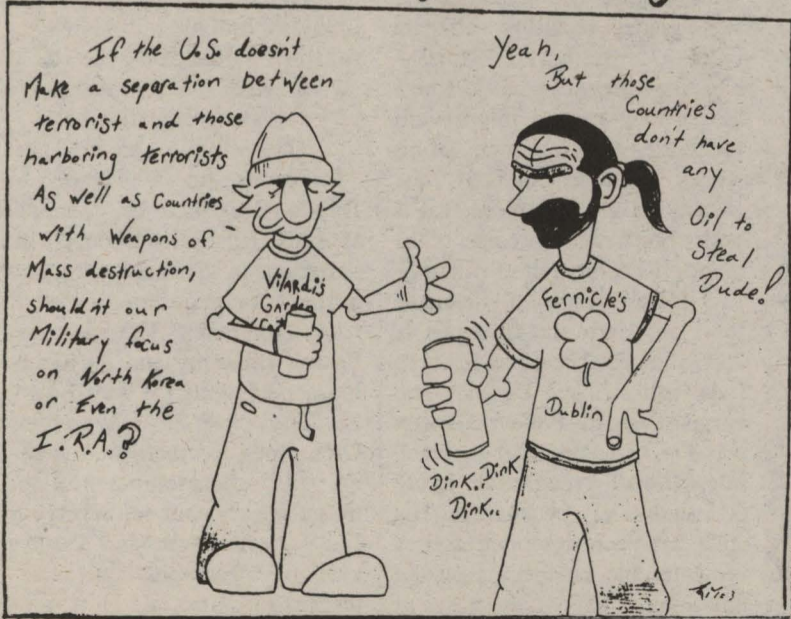 If the U.S. doesn't
Make a separation between
terrorist and those
harboring terrorists
As well as Countries
with Weapons of
Mass destruction,
shouldn't our
Military focus
on North Korea
or Even the
I.R.A.?
Yeah,
But those
Countries
don't have
any
Oil to
Steal
Dude!
Vilardi's
Garden
Fernicle's
Dublin
Dink.. Dink
Dink..